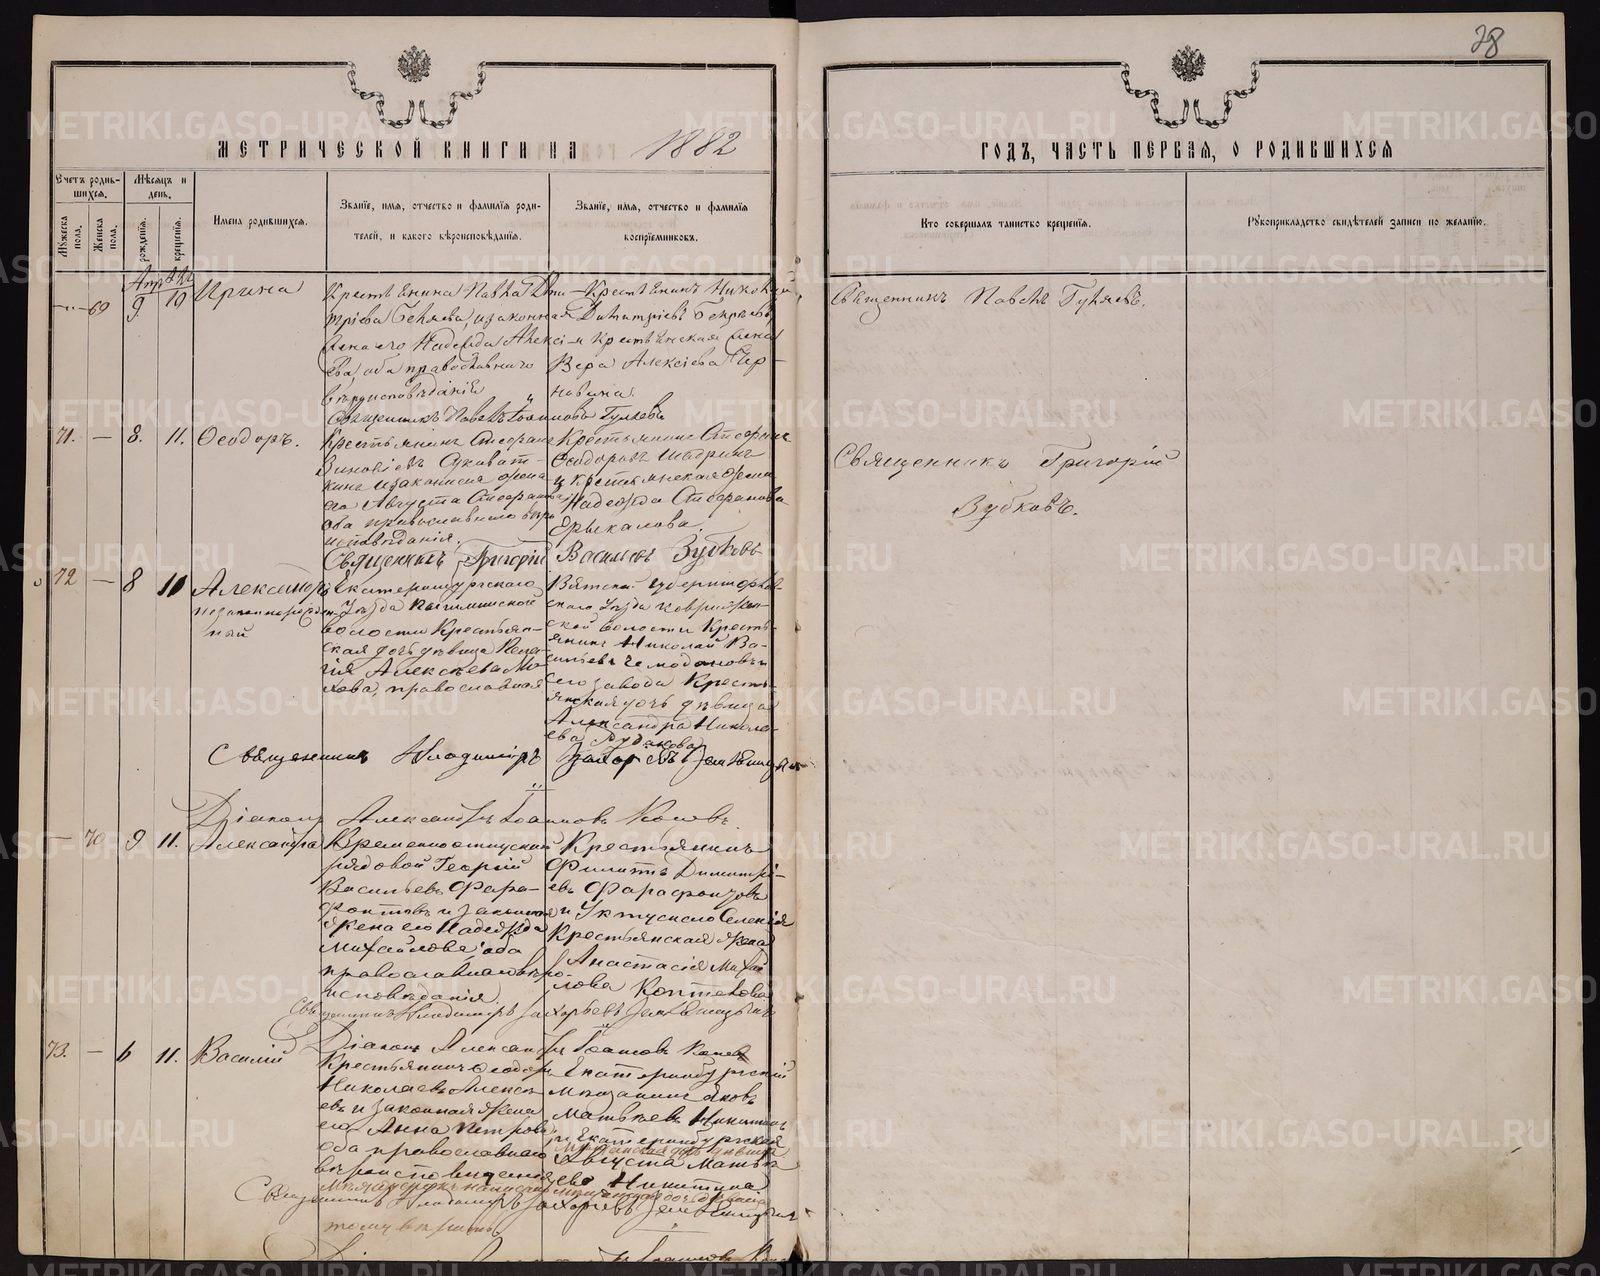 28
МЕТРИЧЕСКОЙ КНИГИ НА 1882
ГОДЪ, ЧАСТЬ ПЕРВАЯ, О РОДИВШИХСЯ
Счетъ родившихся.
Мѣсяцъ и день.
Имена родившихся.
Званіе, имя, отчество и фамилія родителей, и какого вѣроисповѣданія.
Званіе, имя, отчество и фамилія воспріемниковъ.
Кто совершалъ таинство крещенія.
Рукоприкладство свидѣтелей записи по желанію.
Мужеска пола.
Женска пола.
рожденія.
крещенія.
69 9 10 Ирина
Крестьянина Павла Дми-
тріева и законная
жена его Надежда Алексі-
ева, оба православнаго
вѣроисповѣданія
Крестьянинъ Николай
Димитріевъ
и Крестьянская жена
Вера Алексіева
Священникъ Павелъ Гуляевъ.
Священникъ Павелъ Іоанновъ Гуляевъ
71. — 8. 11. Ѳеодоръ.
Крестьянинъ Стефанъ
Зиновіевъ
и законная жена
его Августа Стефанова
оба православнаго вѣро
исповѣданія.
Крестьянинъ Стефанъ
Ѳеодоровъ Шадринъ
и крестьянская жена
Надежда Стефанова
Ерыкалова.
Священникъ Григорій
Зубковъ.
Священникъ Григорій Васильевъ Зубковъ
72 — 8 10 Александръ
незаконнорожден-
ный
Екатеринбургскаго
уѣзда
волости Крестьян-
ская дочь дѣвица Пела-
гія Алексѣева
православная
Вятской губерніи Орлов-
скаго уѣзда
ской волости Кресть-
янинъ Николай Ва-
сильевъ Чемодановъ и
сего завода Кресть-
янская дочь дѣвица
Александра Никола-
ева Рудакова
Священникъ Владиміръ Захарьевъ Земляницынъ
Діаконъ Александръ Іоанновъ
— 70 9 11. Александра
Временноотпускной
рядовой Георгій
Васильевъ Фара-
фонтовъ и законная
жена его Надежда
Михайлова оба
православнаго вѣро-
исповѣданія
Крестьянинъ
Филиппъ Димитрі-
евъ Фарафонтовъ
и Уктусскаго Селенія
Крестьянская жена
Анастасія Михай
лова Коптелова
Священникъ Владиміръ Захарьевъ Земляницынъ
Діаконъ Александръ Іоанновъ
73. — 6 11. Василій
Крестьянинъ Ѳеодоръ
Николаевъ Алексѣ-
евъ и законная жена
его Анна Петрова
оба православнаго
вѣроисповѣданія
Екатеринбургскій
мѣщанинъ Яковъ
Матвѣевъ Никитинъ
и Екатеринбургская
мѣщанская дочь дѣвица
Августа Матвѣ-
ева Никитина
Священникъ Владиміръ Захарьевъ Земляницынъ
METRIKI.GASO-URAL.RU